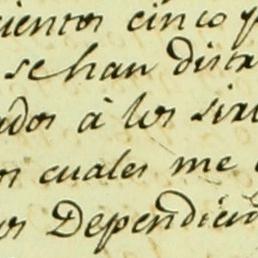 cientos cinco p
se han distr
ados à los sir
os cuales me
us Dependien